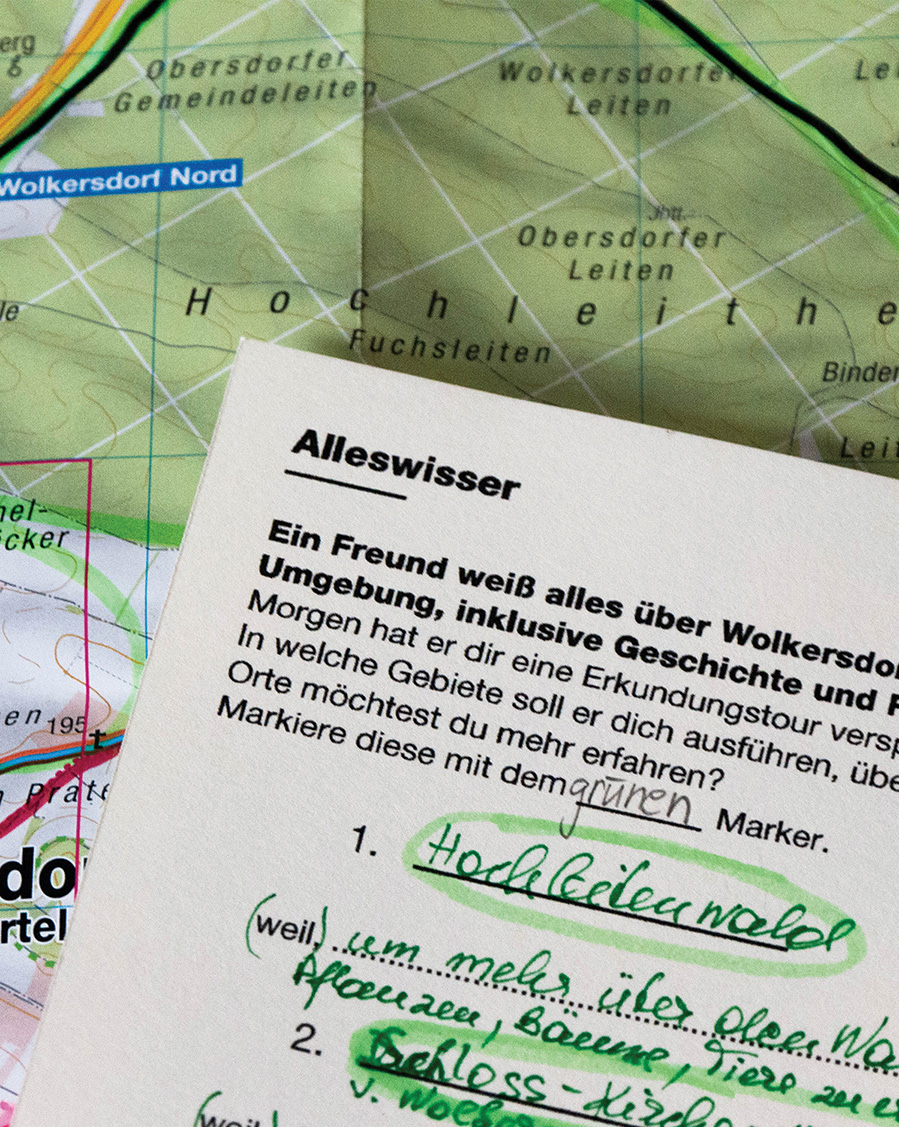 erg
Obersdorfer
Gemeindeleiten
Wolkersdorfer
Leiten
Le
Wolkersdorf Nord
Jbtt.
Obersdorfer
Leiten
le
H o c h l e i t h e
Fuchsleiten
Binder
Leit
nel-
öcker
en 195
n Prate
do
rtel
Alleswisser
Ein Freund weiß alles über Wolkersdor
Umgebung, inklusive Geschichte und F
Morgen hat er dir eine Erkundungstour versp
In welche Gebiete soll er dich ausführen, übe
Orte möchtest du mehr erfahren?
Markiere diese mit dem grünen Marker.
1. Hochleitenwald
(weil) um mehr über den Wa
Pflanzen, Bäume, Tiere zu e
2. Schloss-Kirche
v.
(weil)